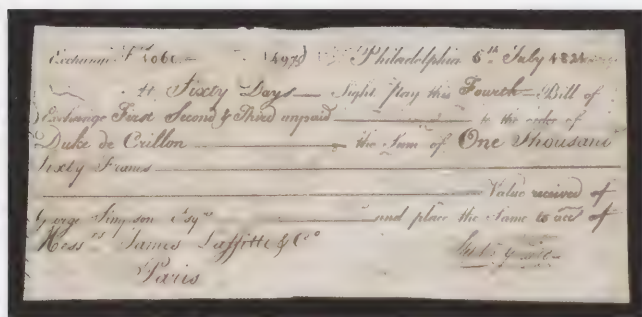 Exchange F 1060 — 1497) Philadelphia 6th July 1821
At Sixty Days — Sight Pay this Fourth Bill of
Exchange First Second & Third unpaid — to the order of
Duke de Crillon — the Sum of One Thousand
Sixty Francs
Value received of
George Simpson Esqr — and place the same to acct of
Mess rs James Laffitte & Co
Paris